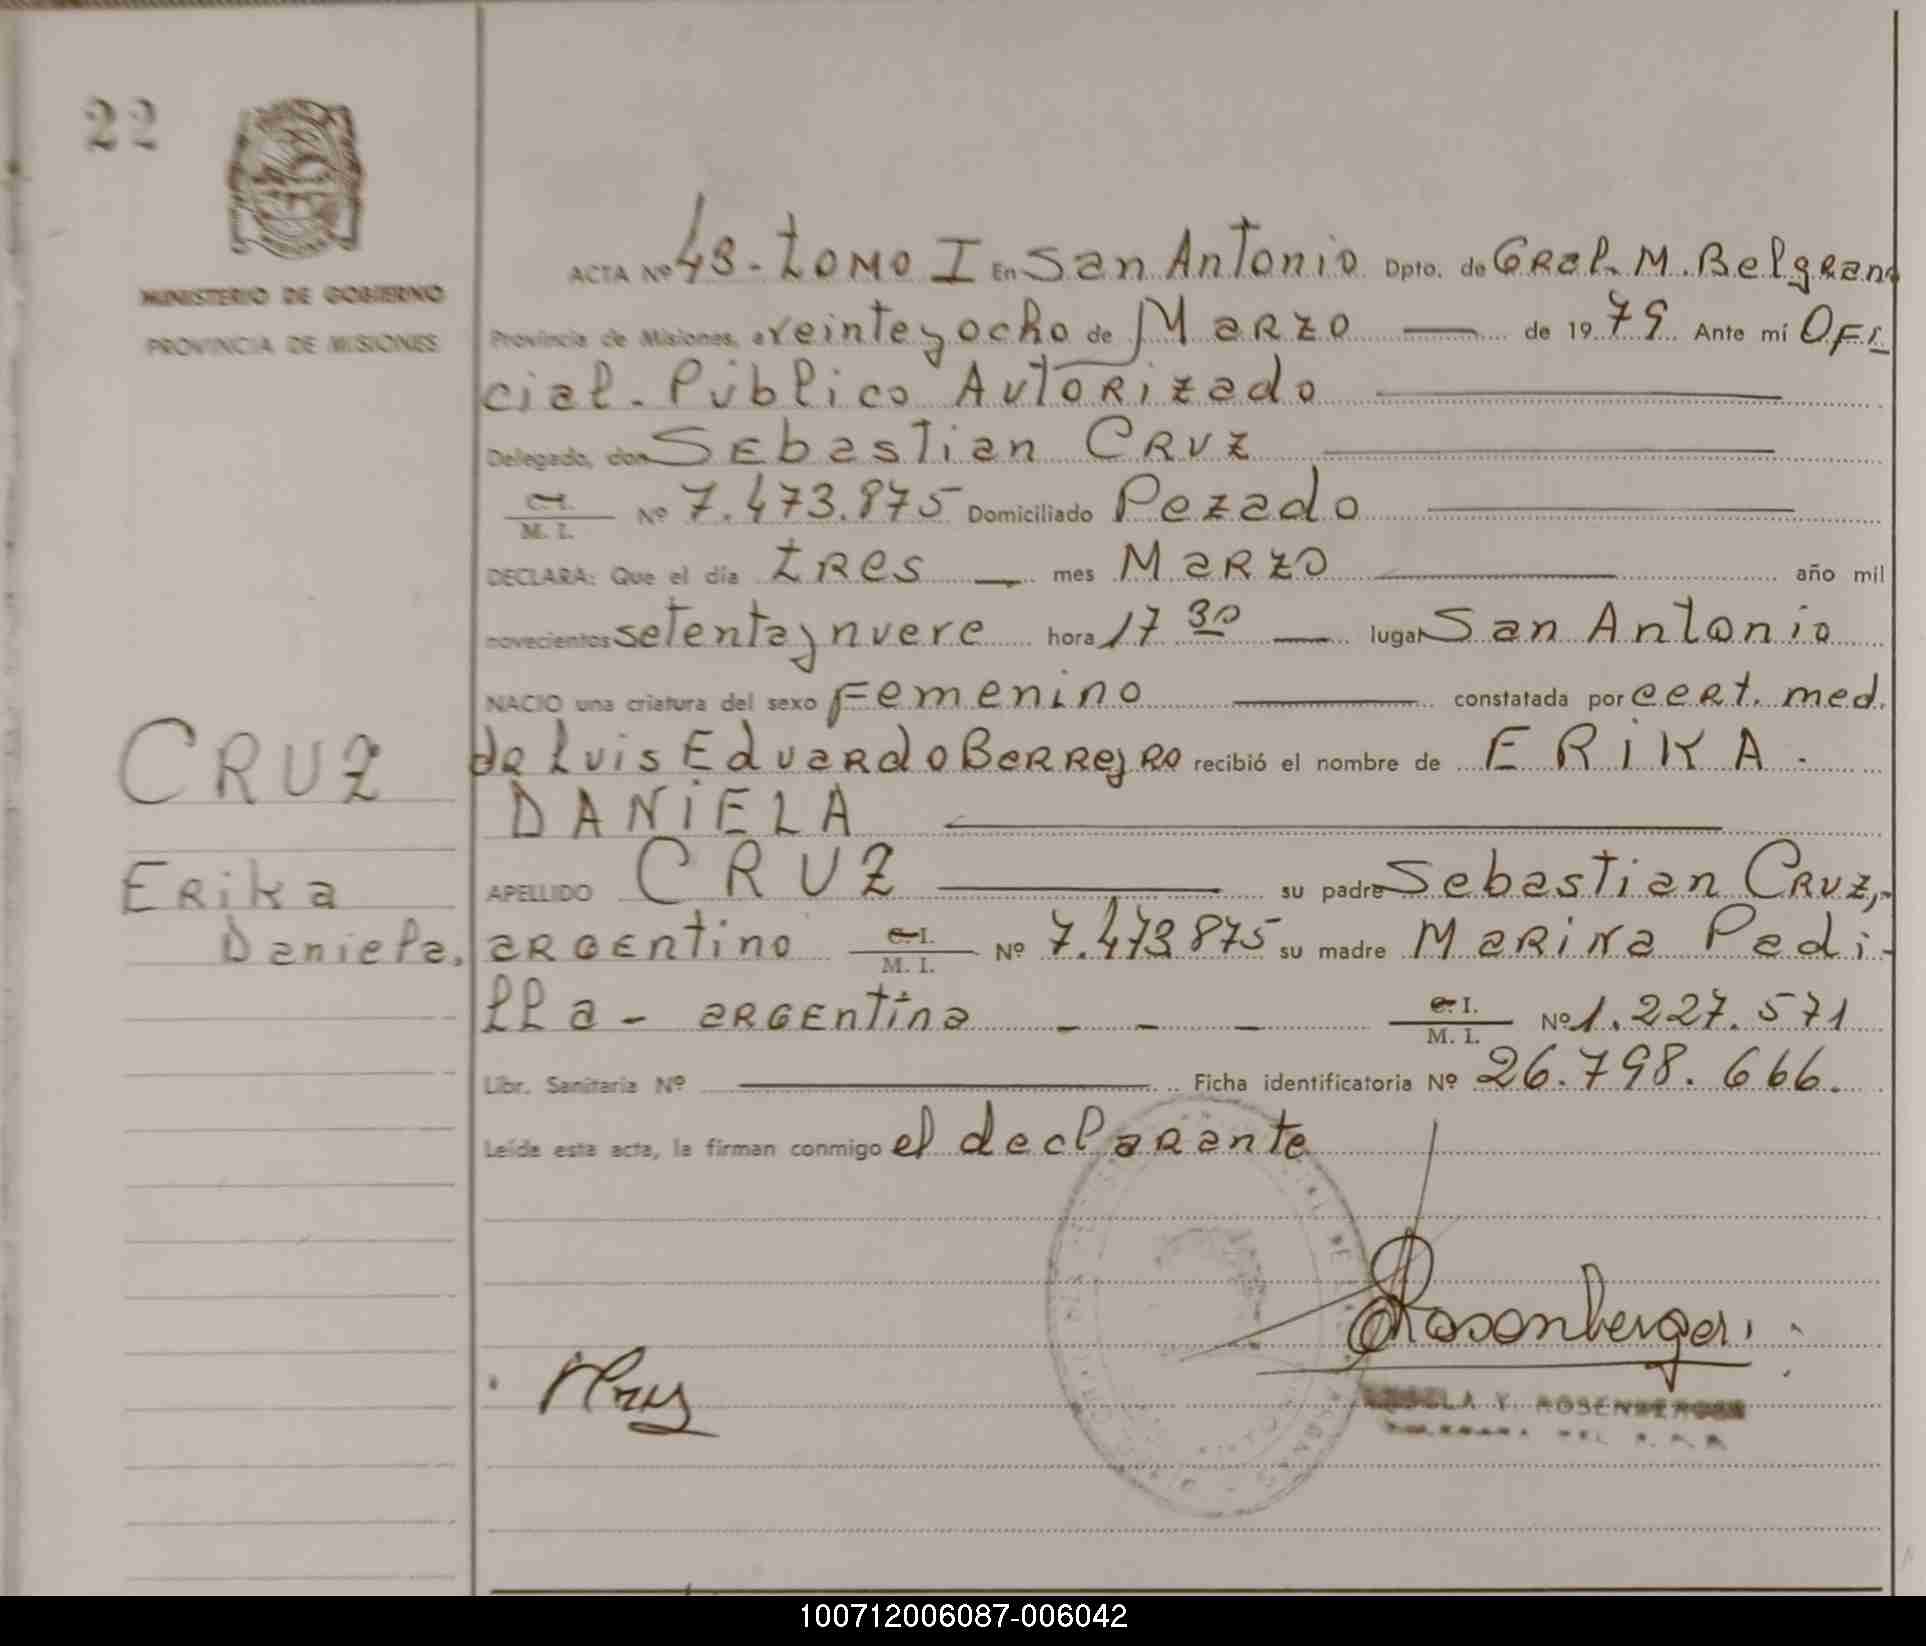 22
MINISTERIO DE GOBIERNO
PROVINCIA DE MISIONES
ACTA Nº 43 - tomo I En San Antonio Dpto. de Gral. M. Belgrano
Provincia de Misiones, a veinte y ocho de Marzo de 1979 Ante mí Ofi
cial. Público Autorizado
Delegado, don Sebastian Cruz
C. I. / M. I. Nº 7.473.875 Domiciliado Pozado
DECLARA: Que el día tres mes Marzo año mil
novecientos setenta y nueve hora 17 30 lugar San Antonio
NACIO una criatura del sexo Femenino constatada por cert. med.
de Luis Eduardo Berreyro recibió el nombre de ERIKA -
DANIELA
APELLIDO CRUZ su padre Sebastian Cruz,-
argentino C. I. / M. I. Nº 7.473.875 su madre Marina Padi-
lla - argentina - - - C. I. / M. I. Nº 1.227.571
Libr. Sanitaria Nº Ficha identificatoria Nº 26.798.666.
Leída esta acta, la firman conmigo el declarante
CRUZ
Erika
Daniela.
Cruz
Rosenberger
Y. ROSENBERGER
100712006087-006042